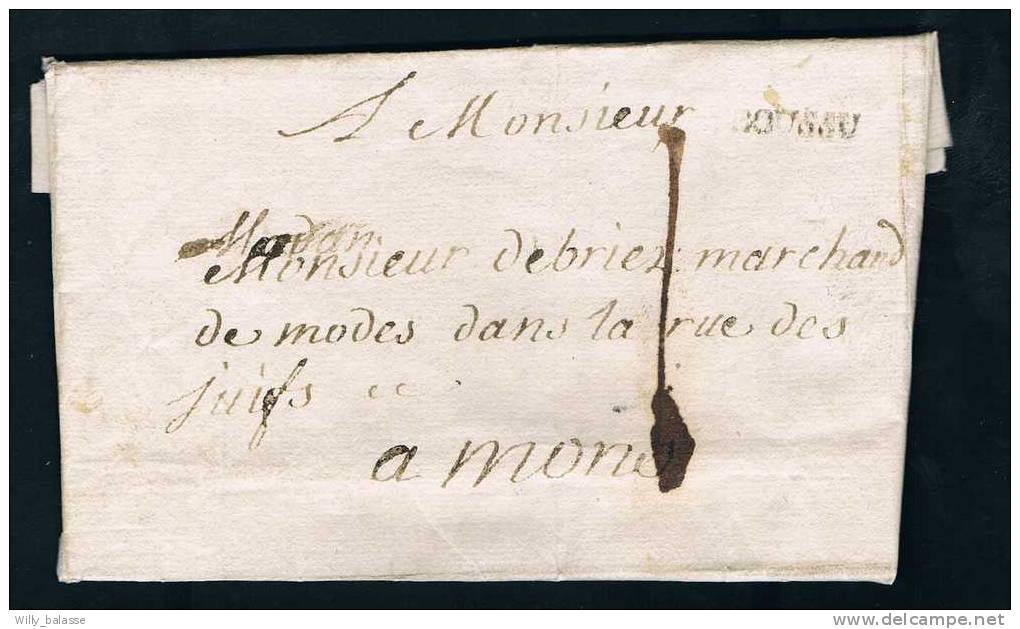 A Monsieur
BOUSSU
Monsieur debriez marchand
de modes dans la rue des
juifs
a mons
Willy_balasse
delcampe.net